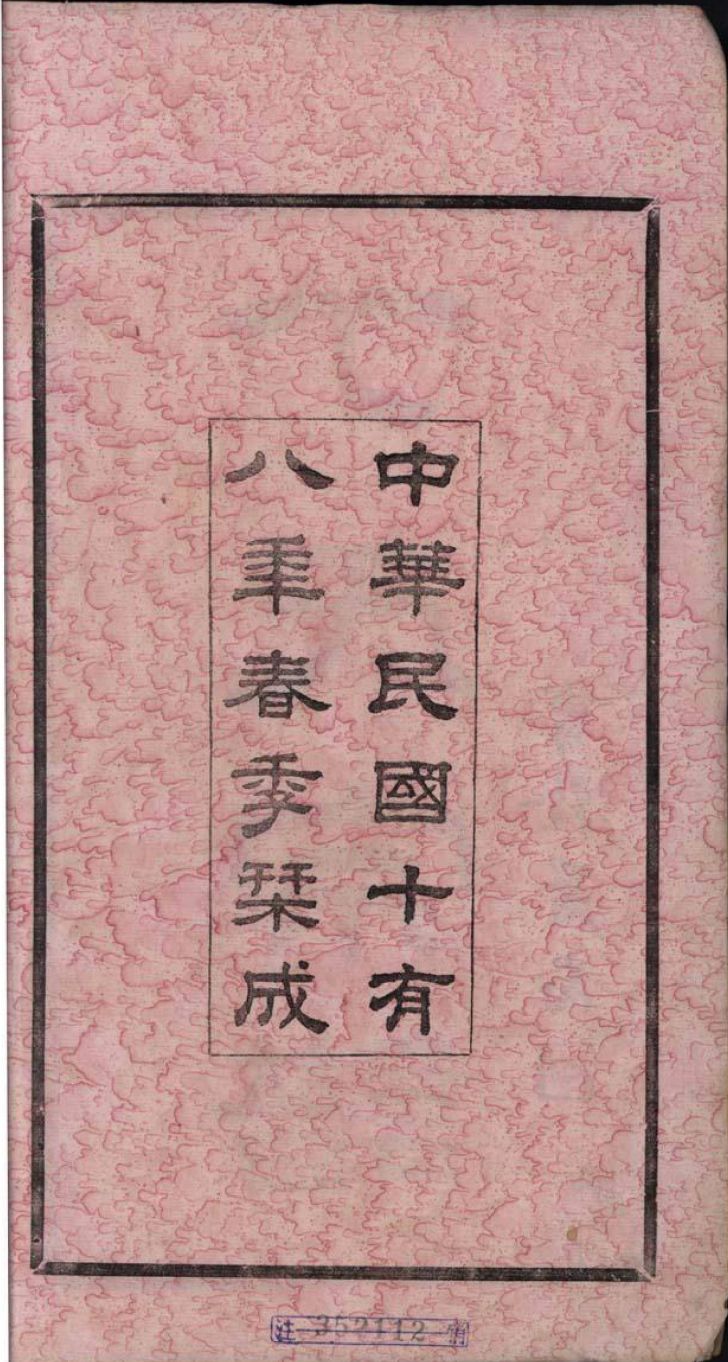 中華民國十有
八年春季栞成
注 352112 銷